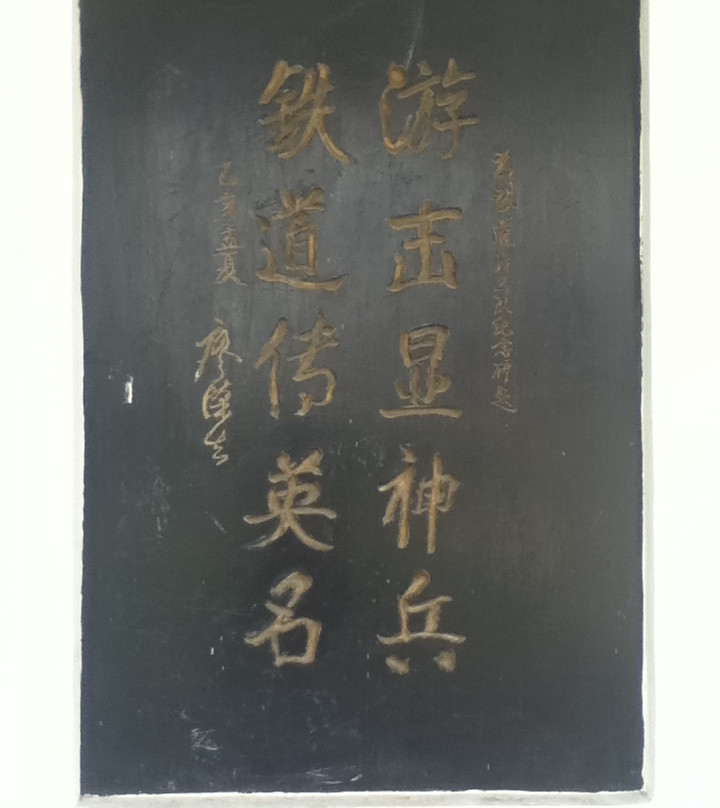 铁道游击队纪念碑题
游击显神兵
铁道传英名
乙亥孟夏
廖汉生